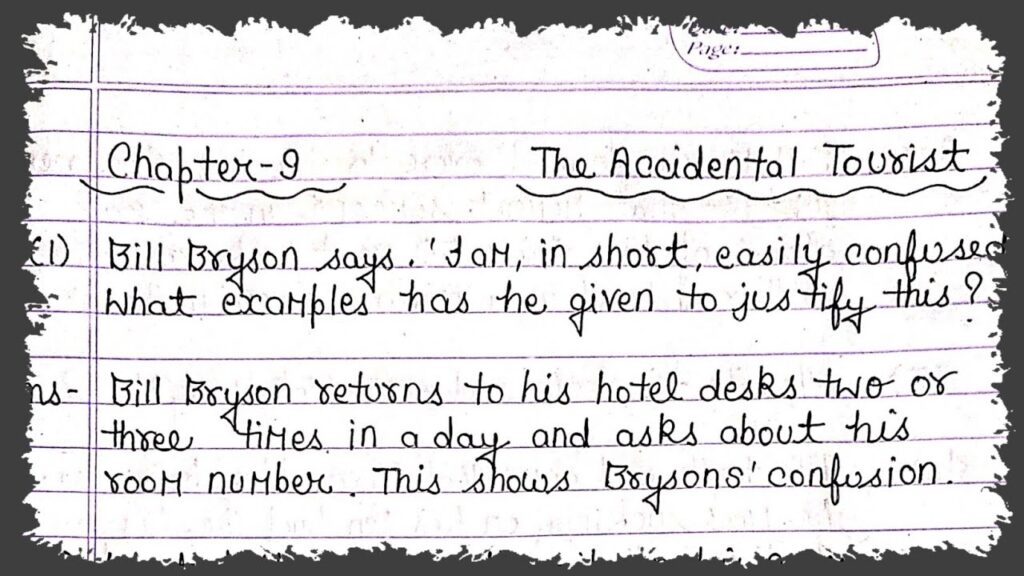 Page:
Chapter-9 The Accidental Tourist
Bill Bryson says. 'I am, in short, easily confused
What examples has he given to justify this?
ns- Bill Bryson returns to his hotel desks two or
three times in a day and asks about his
room number. This shows Brysons' confusion.